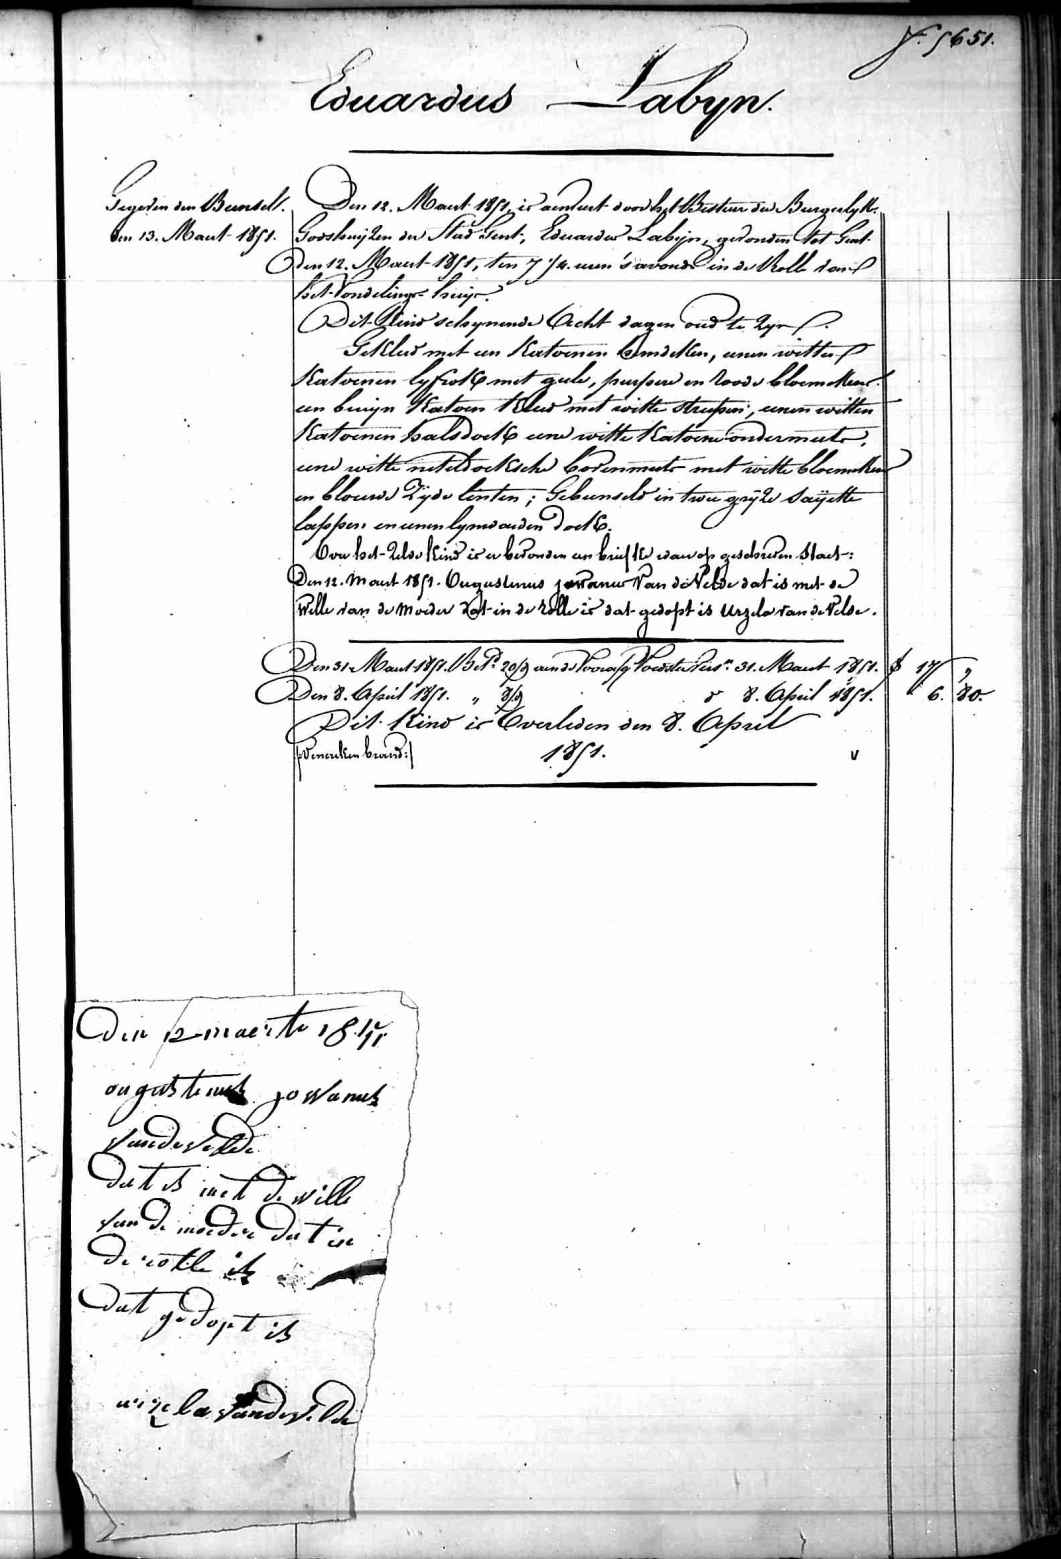 f. 5651.
Eduardus Labyn.
Gegeven den Bunsel.
den 13. Maert 1851.
Den 12. Maert 1851, is aenveert door het Bestuer der Burgerlyke
Godshuijzen der Stad Gent, Eduardus Labijn, gevonden tot Gent
den 12. Maert 1851, ten 7 1/4 uren 's avonds in de Rolle van
het Vondelings huijs.
Dit Kind schynende Acht dagen oud te Zyn.
Gekleed met een Katoenen hemdeken, eenen witten
Katoenen lyfrok met gele, purpere en roode bloemekens
een bruijn Katoen Kleed met witte streepen, eenen witten
Katoenen halsdoek eene witte Katoene ondermuts,
eene witte neteldoeksche bovenmuts met witte bloemekens
en blouwe Zijde linten; Gebunseld in twee grijze saijette
lappen en eenen lynwaeden doek.
Over het Zelve Kind is er bevonden een briefke waer op geschreven staet:
Den 12. Maert 1851. Ougustenus jowanus Van de Velde dat is met de
Wille van de Moeder dat in de rolle is dat gedopt is Urzela van de Velde.
Den 31. Maert 1851. Bet. 20/9 aen de Voorz. Voedster 31. Maert 1851. 17 "
Den 8. April 1851. " 8/9 8. April 1851. 6. 80.
Dit Kind is Overleden den 8. April
1851.
Den 12 maerte 1851
ougustenus jowanus
van de velde
dat is met de wille
van de moeder dat in
de rolle is
dat gedopt is
urzela van de velde